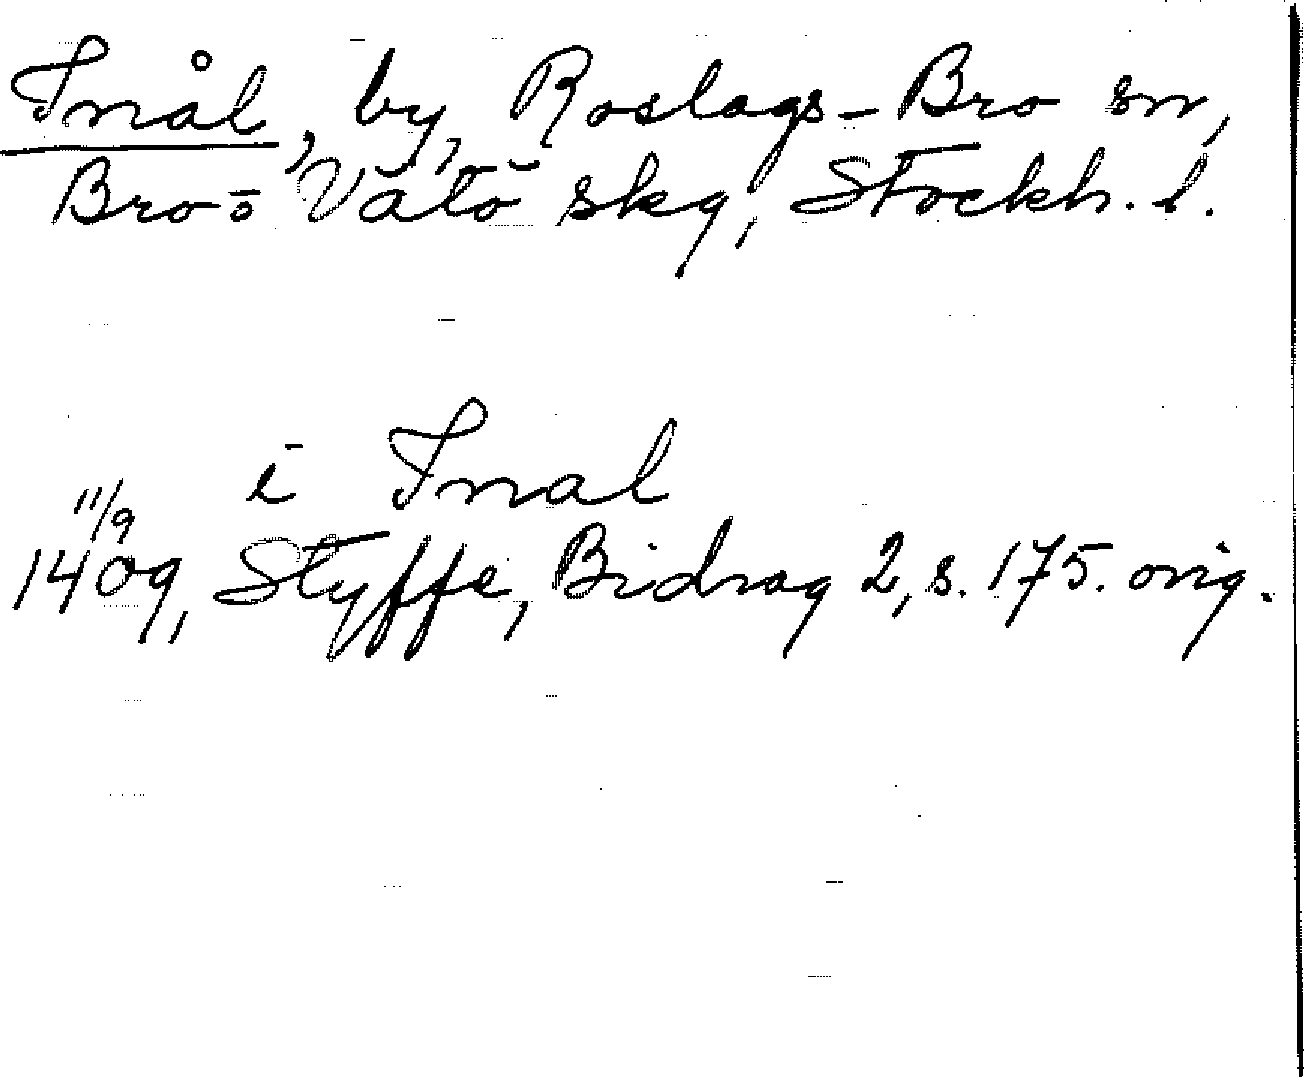 Inål, by, Roslags-Bro sn,
Bro o Vätö skg, Stockh. l.
i Inal
11/9
1409, Styffe, Bidrag 2, s. 175. orig.